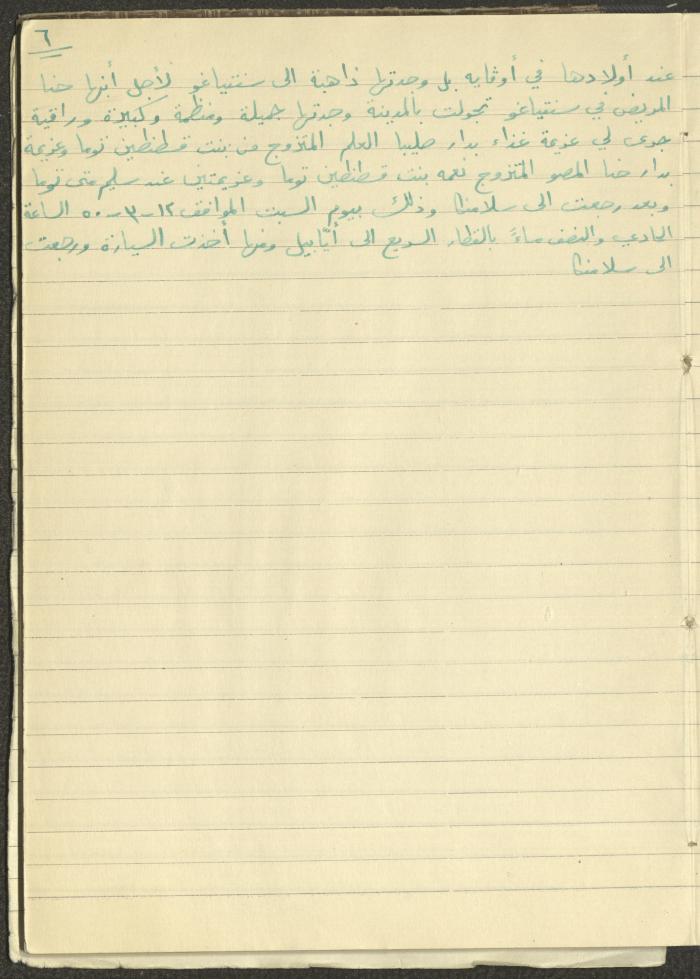 ٦
عند أولادها في أوڤايه بل وجدتها ذاهبة الى سنتياغو لأجل أبنها حنا
المريض في سنتياغو تجولت بالمدينة وجدتها جميلة ومنظمة وكبيرة وراقية
جرى لي عزيمة غذاء بدار صليبا العلم المتزوج من بنت قسطنطين توما وعزيمة
بدار حنا المصو المتزوج نعمه بنت قسطنطين توما وعزيمتين عند سليم متى توما
وبعد رجعت الى سلامنكا وذلك بيوم السبت الموافق ١٢-٣-٥٠ الساعة
الحادي والنصف مساءً بالقطار السريع الى أيّابيل ومنها أخذت السيارة ورجعت
الى سلامنكا